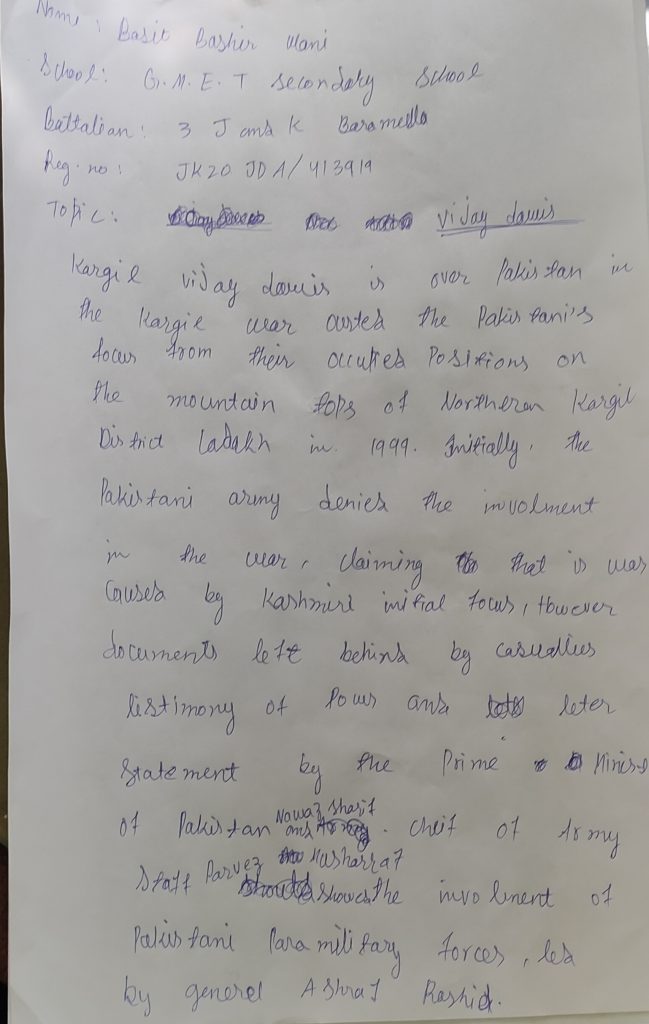 Name : Basit Bashir Wani
School: G.M.E.T secondary school
Battalian: 3 J and K Baramella
Reg. no: JK20 JDA/413919
Topic: vijay dawis
Kargil vijay dawis is over Pakistan in
the Kargil war ousted the Pakistani's
focus from their occupied Positions on
the mountain tops of Northeren Kargil
District Ladakh in 1999. Initially, the
Pakistani army denied the involment
in the war, claiming that is was
Caused by Kashmiri initial focus, However
documents left behind by casualties
testimony of Pows and leter
Statement by the Prime Minis
of Pakistan Nawaz Sharif and cheif of Army
Staff Parvez Musharraf showed the involment of
Pakistani Paramilitary forces, led
by general Ashraf Rashid.